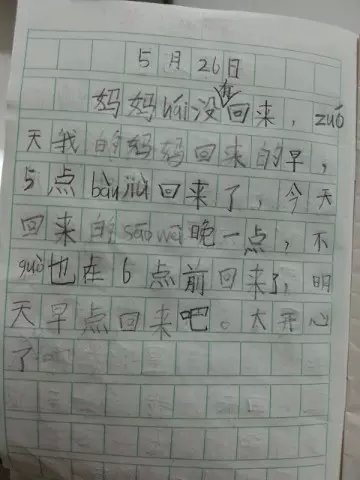 5月26日
妈妈hái没有回来，zuó
天我的妈妈回来的早，
5点bànjiù回来了，今天
回来的sāo wēi晚一点，不
guò也在6点前回来了，明
天早点回来吧。太开心
了